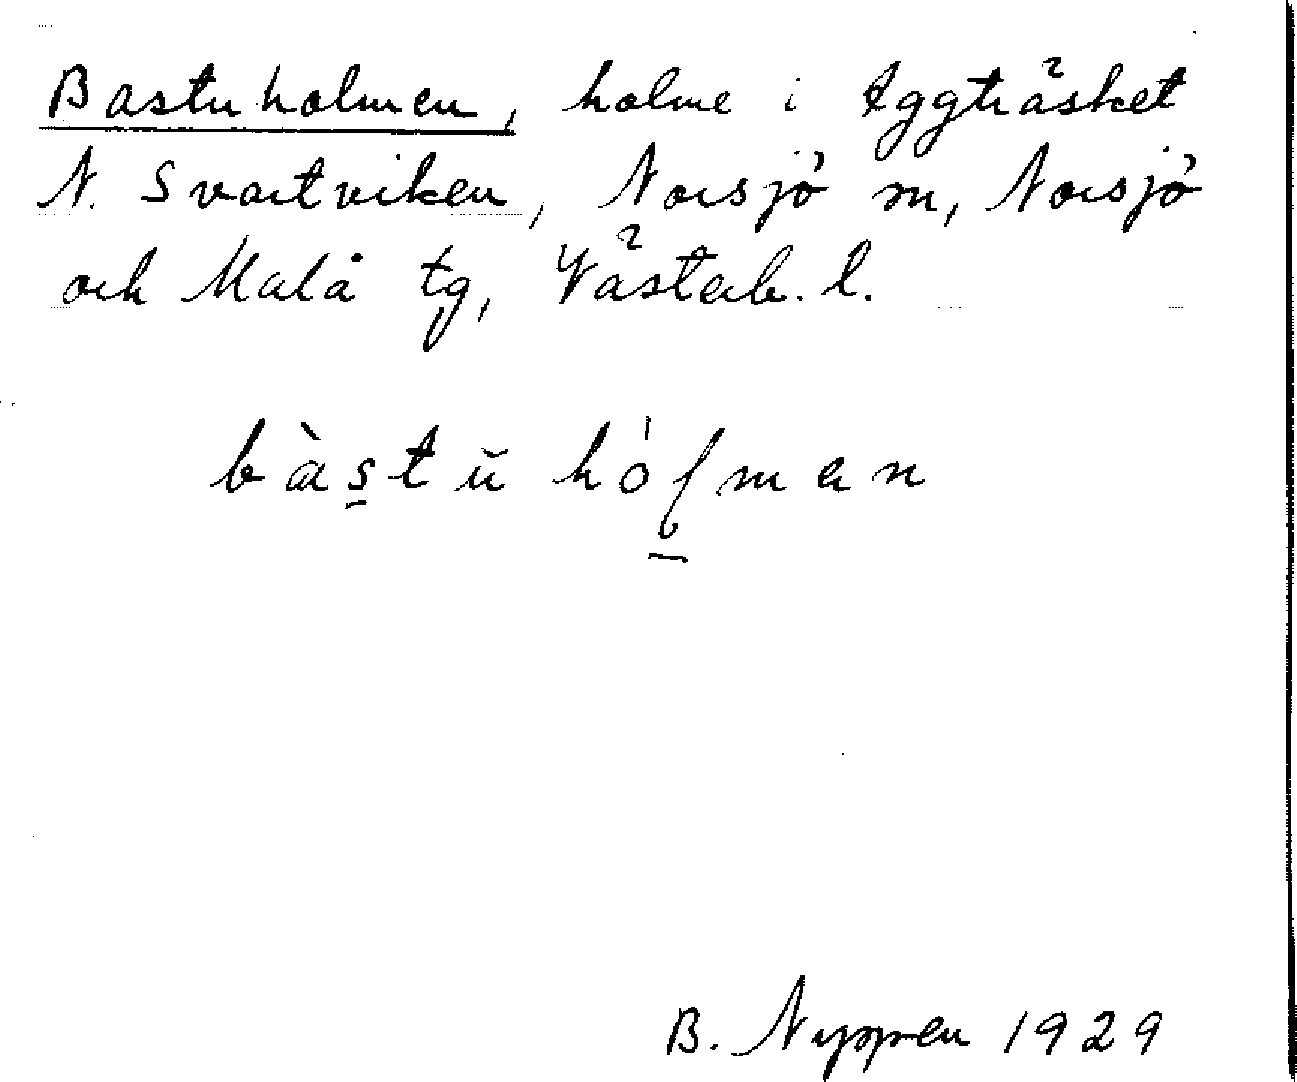 Bastuholmen, holme i Aggträsket
N. Svartviken, Norsjö sn, Norsjö
och Malå tg, Västerb. l.
bàstŭ hólman
B. Nyppen 1929